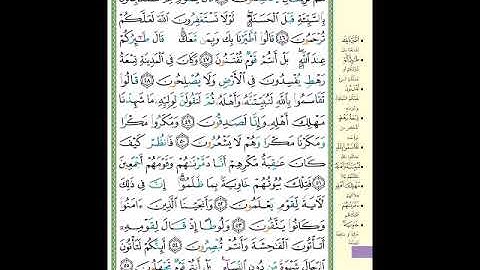 بِٱلسَّيِّئَةِ قَبْلَ ٱلْحَسَنَةِ ۖ لَوْلَا تَسْتَغْفِرُونَ ٱللَّهَ لَعَلَّكُمْ
تُرْحَمُونَ ﴿٤٦﴾ قَالُوا۟ ٱطَّيَّرْنَا بِكَ وَبِمَن مَّعَكَ ۚ قَالَ طَـٰٓئِرُكُمْ
عِندَ ٱللَّهِ ۖ بَلْ أَنتُمْ قَوْمٌ تُفْتَنُونَ ﴿٤٧﴾ وَكَانَ فِى ٱلْمَدِينَةِ تِسْعَةُ
رَهْطٍ يُفْسِدُونَ فِى ٱلْأَرْضِ وَلَا يُصْلِحُونَ ﴿٤٨﴾ قَالُوا۟
تَقَاسَمُوا۟ بِٱللَّهِ لَنُبَيِّتَنَّهُۥ وَأَهْلَهُۥ ثُمَّ لَنَقُولَنَّ لِوَلِيِّهِۦ مَا شَهِدْنَا
مَهْلِكَ أَهْلِهِۦ وَإِنَّا لَصَـٰدِقُونَ ﴿٤٩﴾ وَمَكَرُوا۟ مَكْرًا
وَمَكَرْنَا مَكْرًا وَهُمْ لَا يَشْعُرُونَ ﴿٥٠﴾ فَٱنظُرْ كَيْفَ
كَانَ عَـٰقِبَةُ مَكْرِهِمْ أَنَّا دَمَّرْنَـٰهُمْ وَقَوْمَهُمْ أَجْمَعِينَ
﴿٥١﴾ فَتِلْكَ بُيُوتُهُمْ خَاوِيَةًۢ بِمَا ظَلَمُوٓا۟ ۗ إِنَّ فِى ذَٰلِكَ
لَـَٔايَةً لِّقَوْمٍ يَعْلَمُونَ ﴿٥٢﴾ وَأَنجَيْنَا ٱلَّذِينَ ءَامَنُوا۟
وَكَانُوا۟ يَتَّقُونَ ﴿٥٣﴾ وَلُوطًا إِذْ قَالَ لِقَوْمِهِۦٓ
أَتَأْتُونَ ٱلْفَـٰحِشَةَ وَأَنتُمْ تُبْصِرُونَ ﴿٥٤﴾ أَئِنَّكُمْ لَتَأْتُونَ
ٱلرِّجَالَ شَهْوَةً مِّن دُونِ ٱلنِّسَآءِ ۚ بَلْ أَنتُمْ قَوْمٌ تَجْهَلُونَ ﴿٥٥﴾